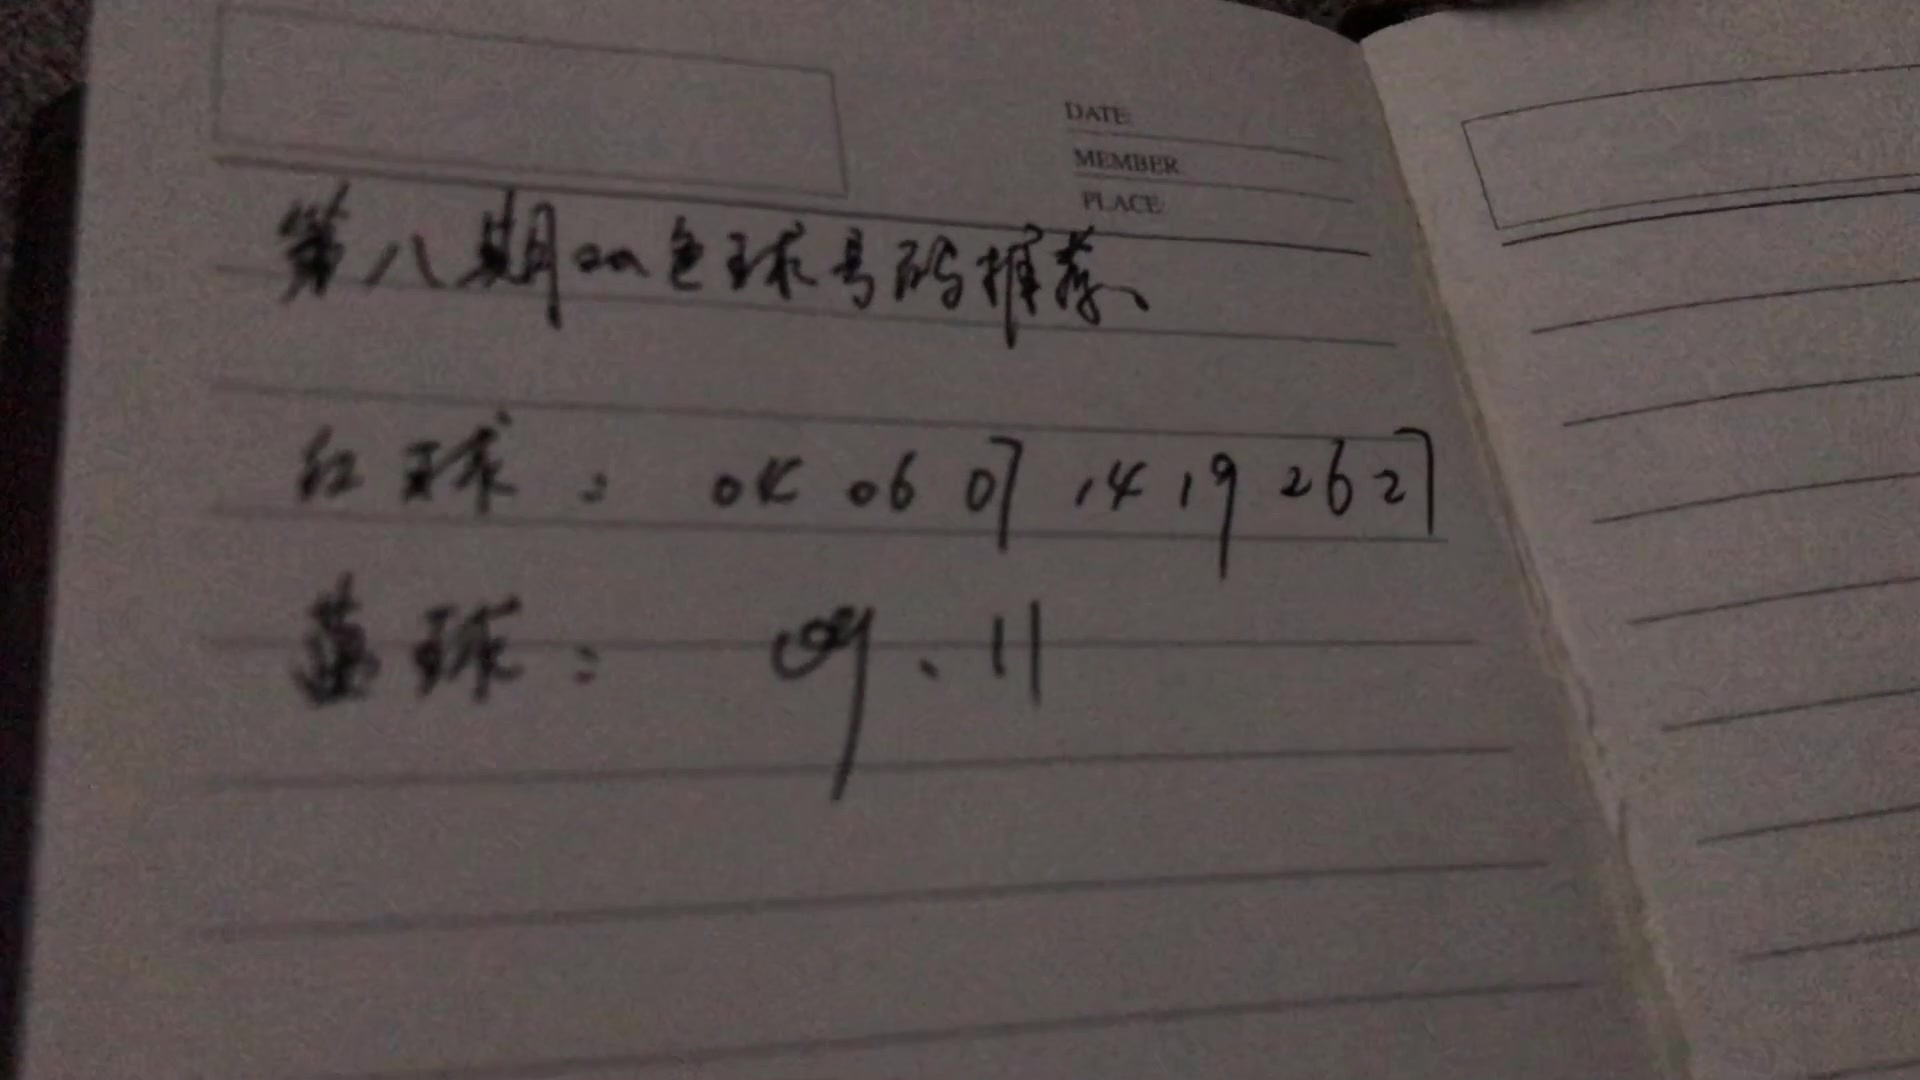 DATE:
MEMBER
PLACE:
第八期双色球号码推荐、
红球: 04 06 07 14 19 26 27
蓝球: 09、11